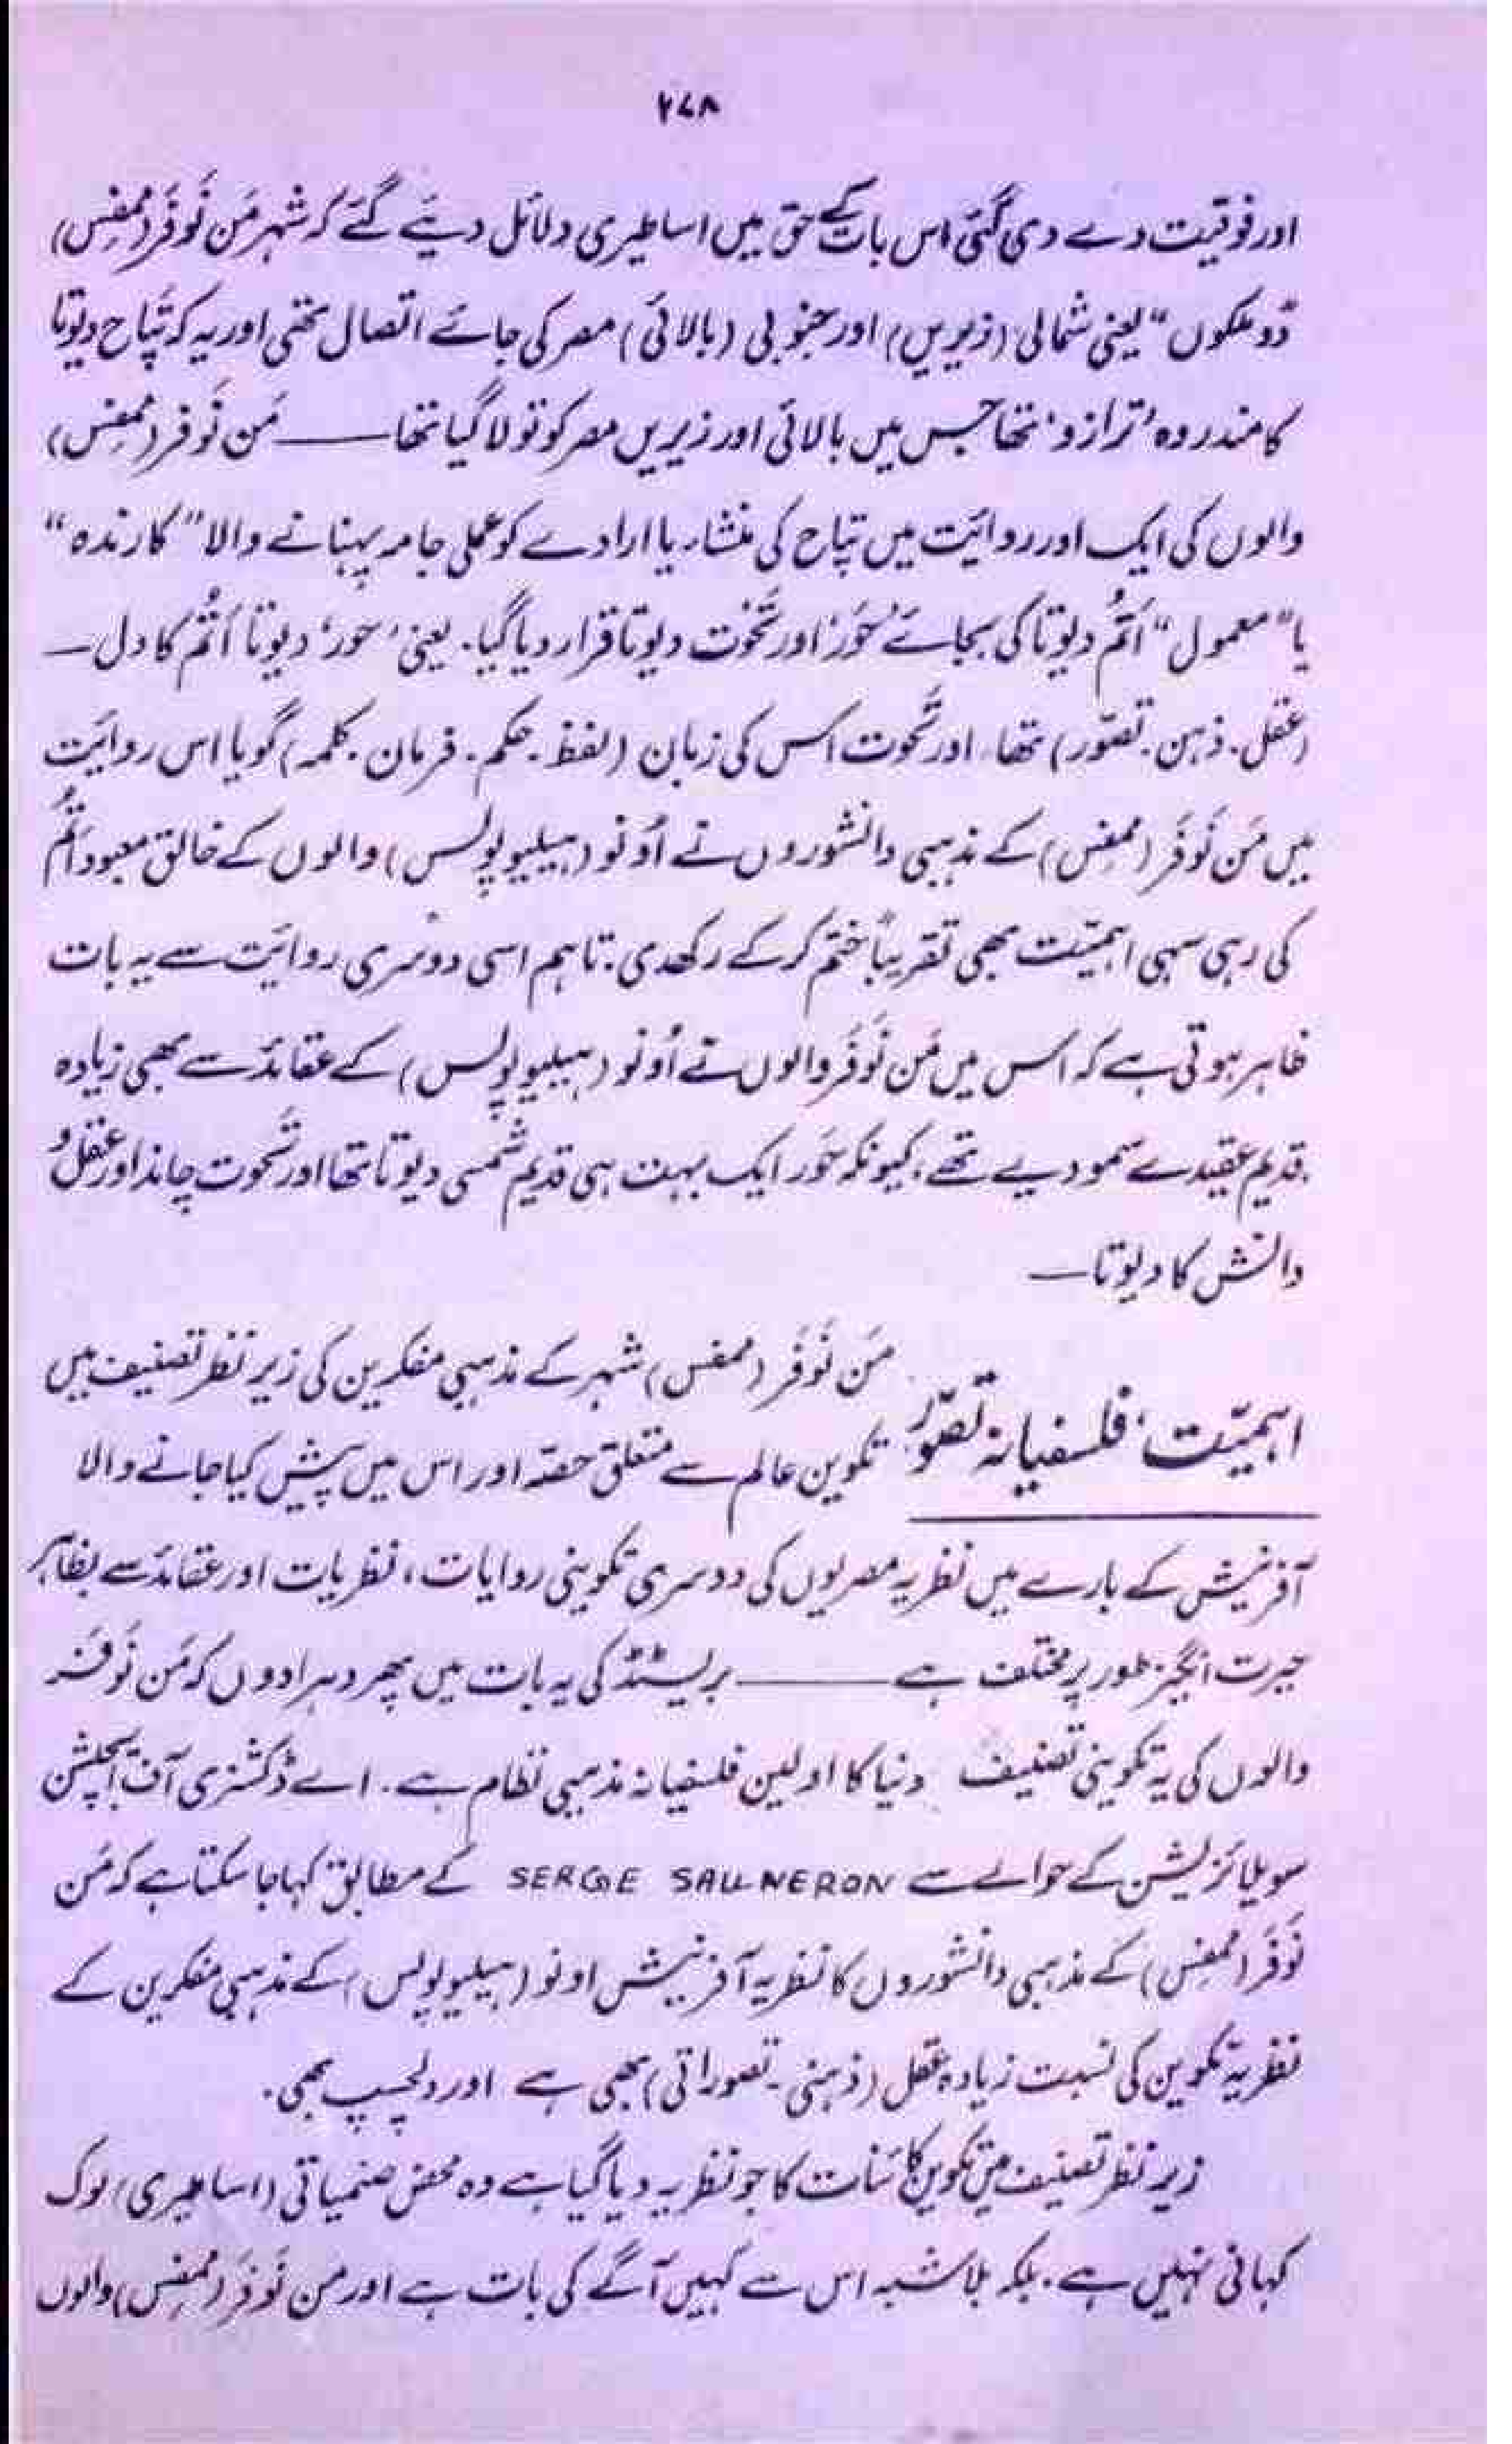 ۲۷۸
اور فوقیت دے دی گئی اس بات کے حق میں اساطیری دلائل دیئے گئے کہ شہر مَن نَوفَر (ممفِس)
”دو ملکوں“ یعنی شمالی (زیریں) اور جنوبی (بالائی) مصر کی جائے اتصال تھی اور یہ کہ تپاح دیوتا
کا مندر وہ ’ترازو‘ تھا جس میں بالائی اور زیریں مصر کو تولا گیا تھا ــــــ مَن نَوفر (ممفِس)
والوں کی ایک اور روائیت میں تپاح کی منشاء یا ارادے کو عملی جامہ پہنانے والا ”کارندہ“
یا ”معمول“ اَتُم دیوتا کی بجائے ’حَور‘ اور تَحُوت دیوتا قرار دیا گیا۔ یعنی ’حور‘ دیوتا اَتُم کا دل ــ
(عقل۔ ذہن۔ تصوّر) تھا، اور تَحوت اس کی زبان (لفظ۔ حکم۔ فرمان۔ کلمہ) گویا اس روائیت
میں مَن نَوفَر (ممفِس) کے مذہبی دانشوروں نے اُونو (ہیلیوپولس) والوں کے خالق معبود اَتُم
کی رہی سہی اہمیّت بھی تقریباً ختم کر کے رکھدی۔ تاہم اسی دوسری روائیت سے یہ بات
ظاہر ہوتی ہے کہ اس میں مَن نَوفَر والوں نے اُونو (ہیلیوپولس) کے عقائد سے بھی زیادہ
قدیم عقیدے سمو دیے تھے، کیونکہ حَور ایک بہت ہی قدیم شمسی دیوتا تھا اور تَحوت چاند اور عقل و
دانش کا دیوتا ــ
اہمیّت، فلسفیانہ تصوّر
مَن نَوفَر (ممفس) شہر کے مذہبی مفکرین کی زیر نظر تصنیف میں
تکوین عالم سے متعلق حصّہ اور اس میں پیش کیا جانے والا
آفرنیش کے بارے میں نظریہ مصریوں کی دوسری تکوینی روایات، نظریات اور عقائد سے بظاہر
حیرت انگیز طور پر مختلف ہے ــــــ بریسٹڈ کی یہ بات میں پھر دہرا دوں کہ مَن نَوفَر
والوں کی یہ تکوینی تصنیف دنیا کا اولین فلسفیانہ مذہبی نظام ہے۔ اے ڈکشنری آف ایجپشن
سویلائزیشن کے حوالے سے SERGE SAUNERON کے مطابق کہا جا سکتا ہے کہ مَن
نَوفَر (ممفِس) کے مذہبی دانشوروں کا نظریہ آفرنیش اونو (ہیلیوپولس) کے مذہبی مفکرین کے
نظریۂ تکوین کی نسبت زیادہ عقل (ذہنی۔ تصوراتی) بھی ہے اور دلچسپ بھی۔
زیر نظر تصنیف میں تکوین کائنات کا جو نظریہ دیا گیا ہے وہ محض صنمیاتی (اساطیری) لوک
کہانی نہیں ہے۔ بلکہ بلاشبہ اس سے کہیں آگے کی بات ہے اور من نَوفَر (ممفِس) والوں